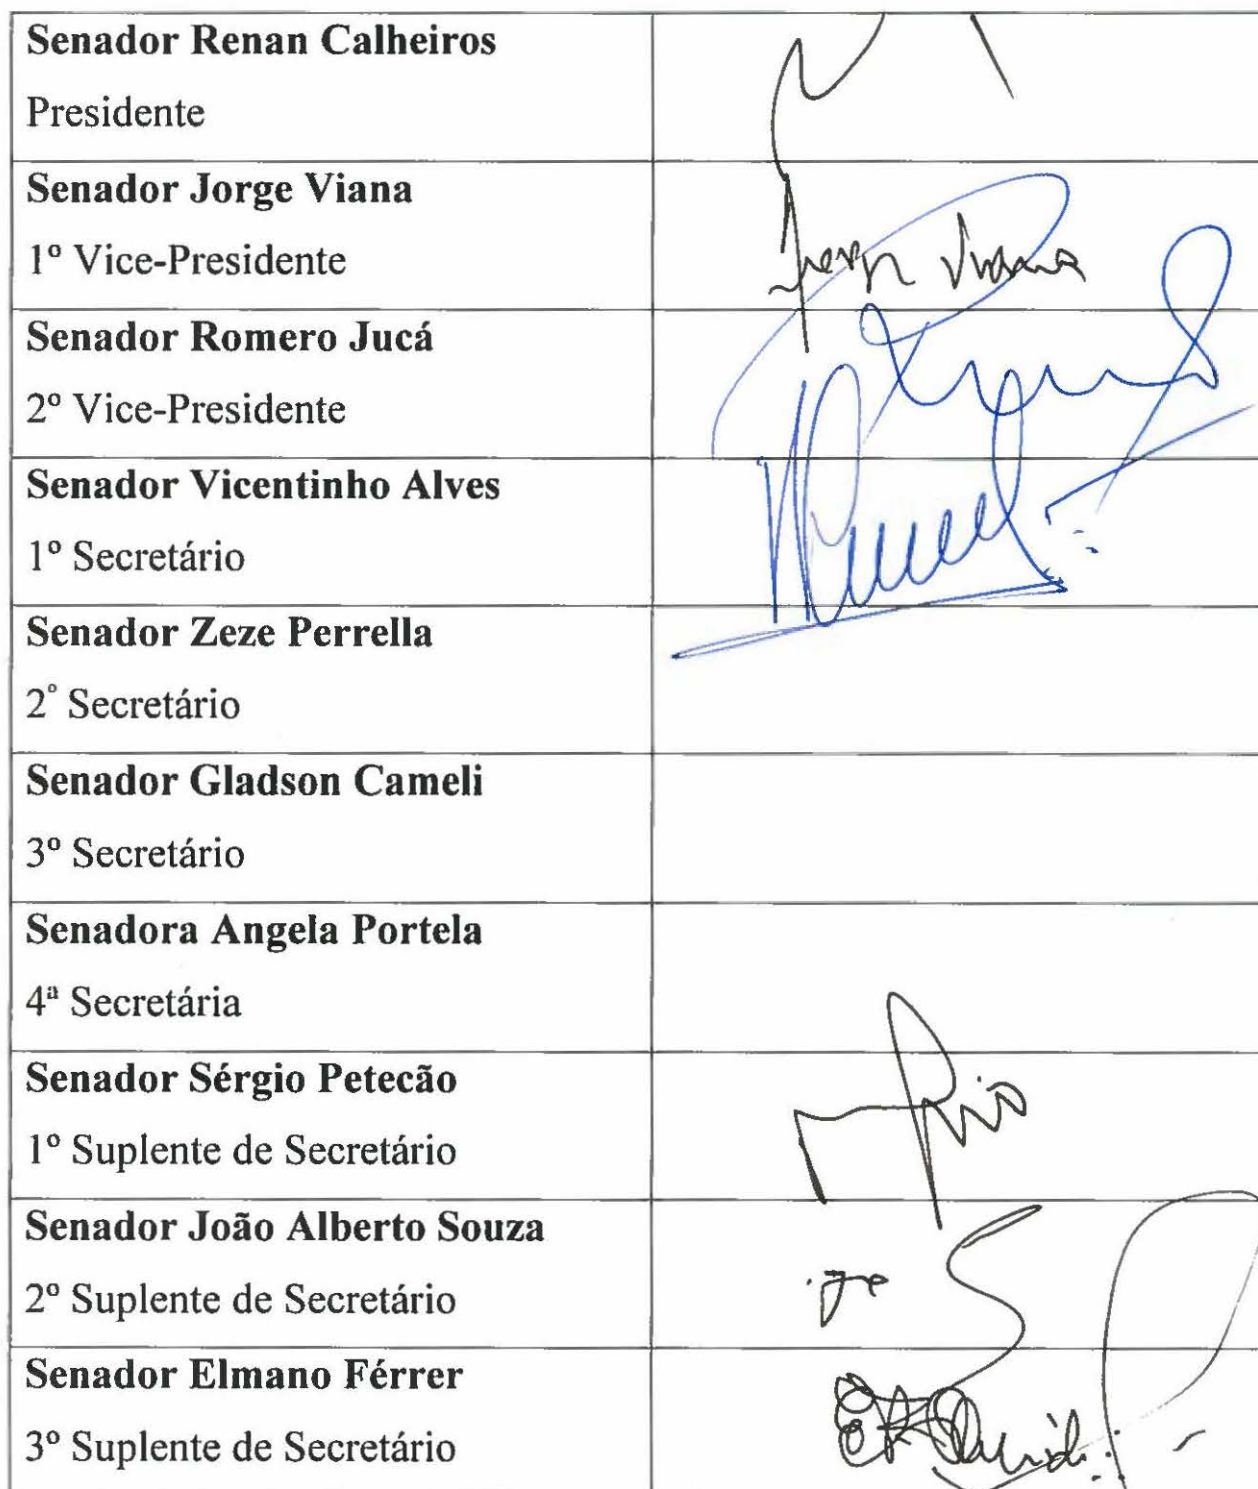 Senador Renan Calheiros
Presidente
Senador Jorge Viana
1º Vice-Presidente
Jorge Viana
Senador Romero Jucá
2º Vice-Presidente
Senador Vicentinho Alves
1º Secretário
Senador Zeze Perrella
2º Secretário
Senador Gladson Cameli
3º Secretário
Senadora Angela Portela
4ª Secretária
Senador Sérgio Petecão
1º Suplente de Secretário
Senador João Alberto Souza
2º Suplente de Secretário
Senador Elmano Férrer
3º Suplente de Secretário